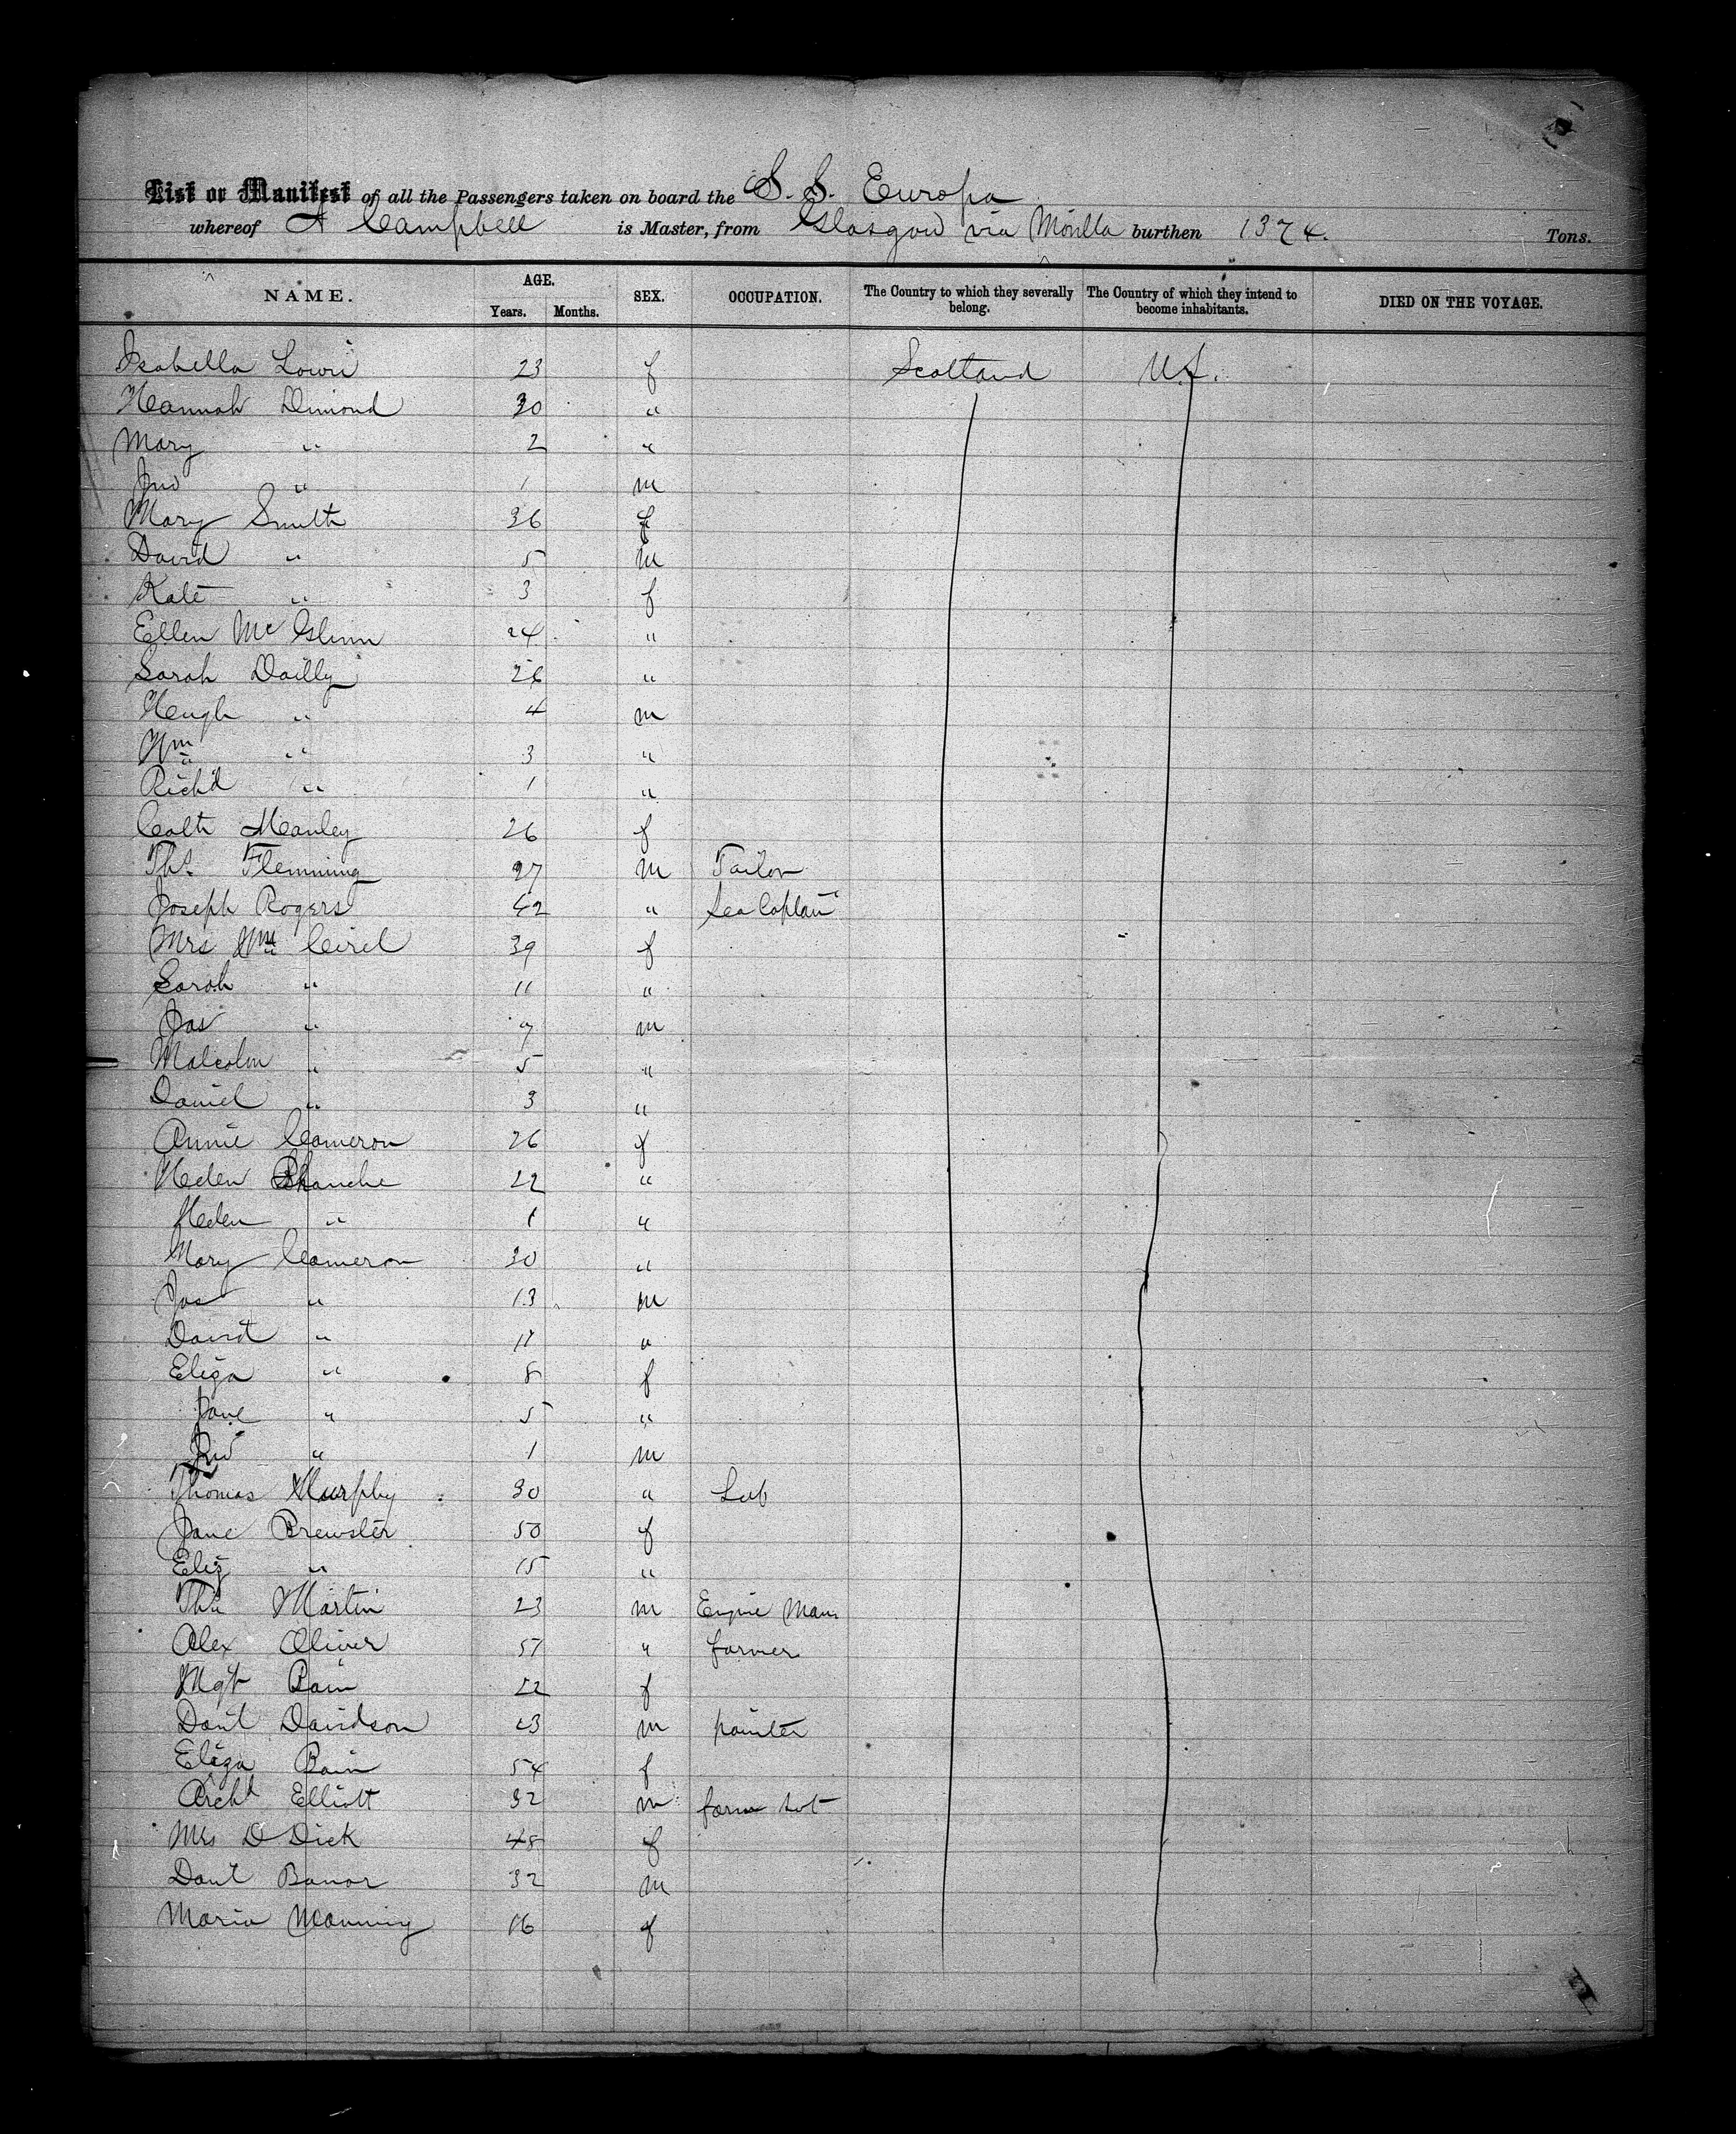 List or Manifest of all the Passengers taken on board the S. S. Europa
whereof A Campbell is Master, from Glasgow via Moville burthen 1374. Tons.
NAME. AGE. Years. Months. SEX. OCCUPATION. The Country to which they severally belong. The Country of which they intend to become inhabitants. DIED ON THE VOYAGE.
Isabella Lowri 23 f Scotland U.S.
Hannah Dimond 30 "
Mary " 2 "
Jno " 1 m
Mary Smith 36 f
David " 5 m
Kate " 3 f
Ellen McGlinn 24 "
Sarah Dailly 26 "
Hugh " 4 m
Wm " 3 "
Richd " 1 "
Cath Manley 26 f
Ths Flemming 27 m Tailor
Joseph Rogers 42 " Sea Captain
Mrs Wm 39 f
Sarah " 11 "
Jas " 7 m
Malcolm " 5 "
Daniel " 3 "
Annie Cameron 26 f
Helen Blanche 22 "
Helen " 1 "
Mary Cameron 30 "
Jas " 13 m
David " 11 "
Eliza " 8 f
Jane " 5 "
Jno " 1 m
Thomas Murphy 30 " Lab
Jane Brewster 50 f
Eliz " 15 "
Thos Martin 23 m Engine Man
Alex Oliver 57 " farmer
Mgt Bain 22 f
Danl Davidson 23 m painter
Eliza Bain 54 f
Archd Elliott 32 m farm svt
Mrs D Dick 48 f
Danl 32 m
Maria Manning 16 f